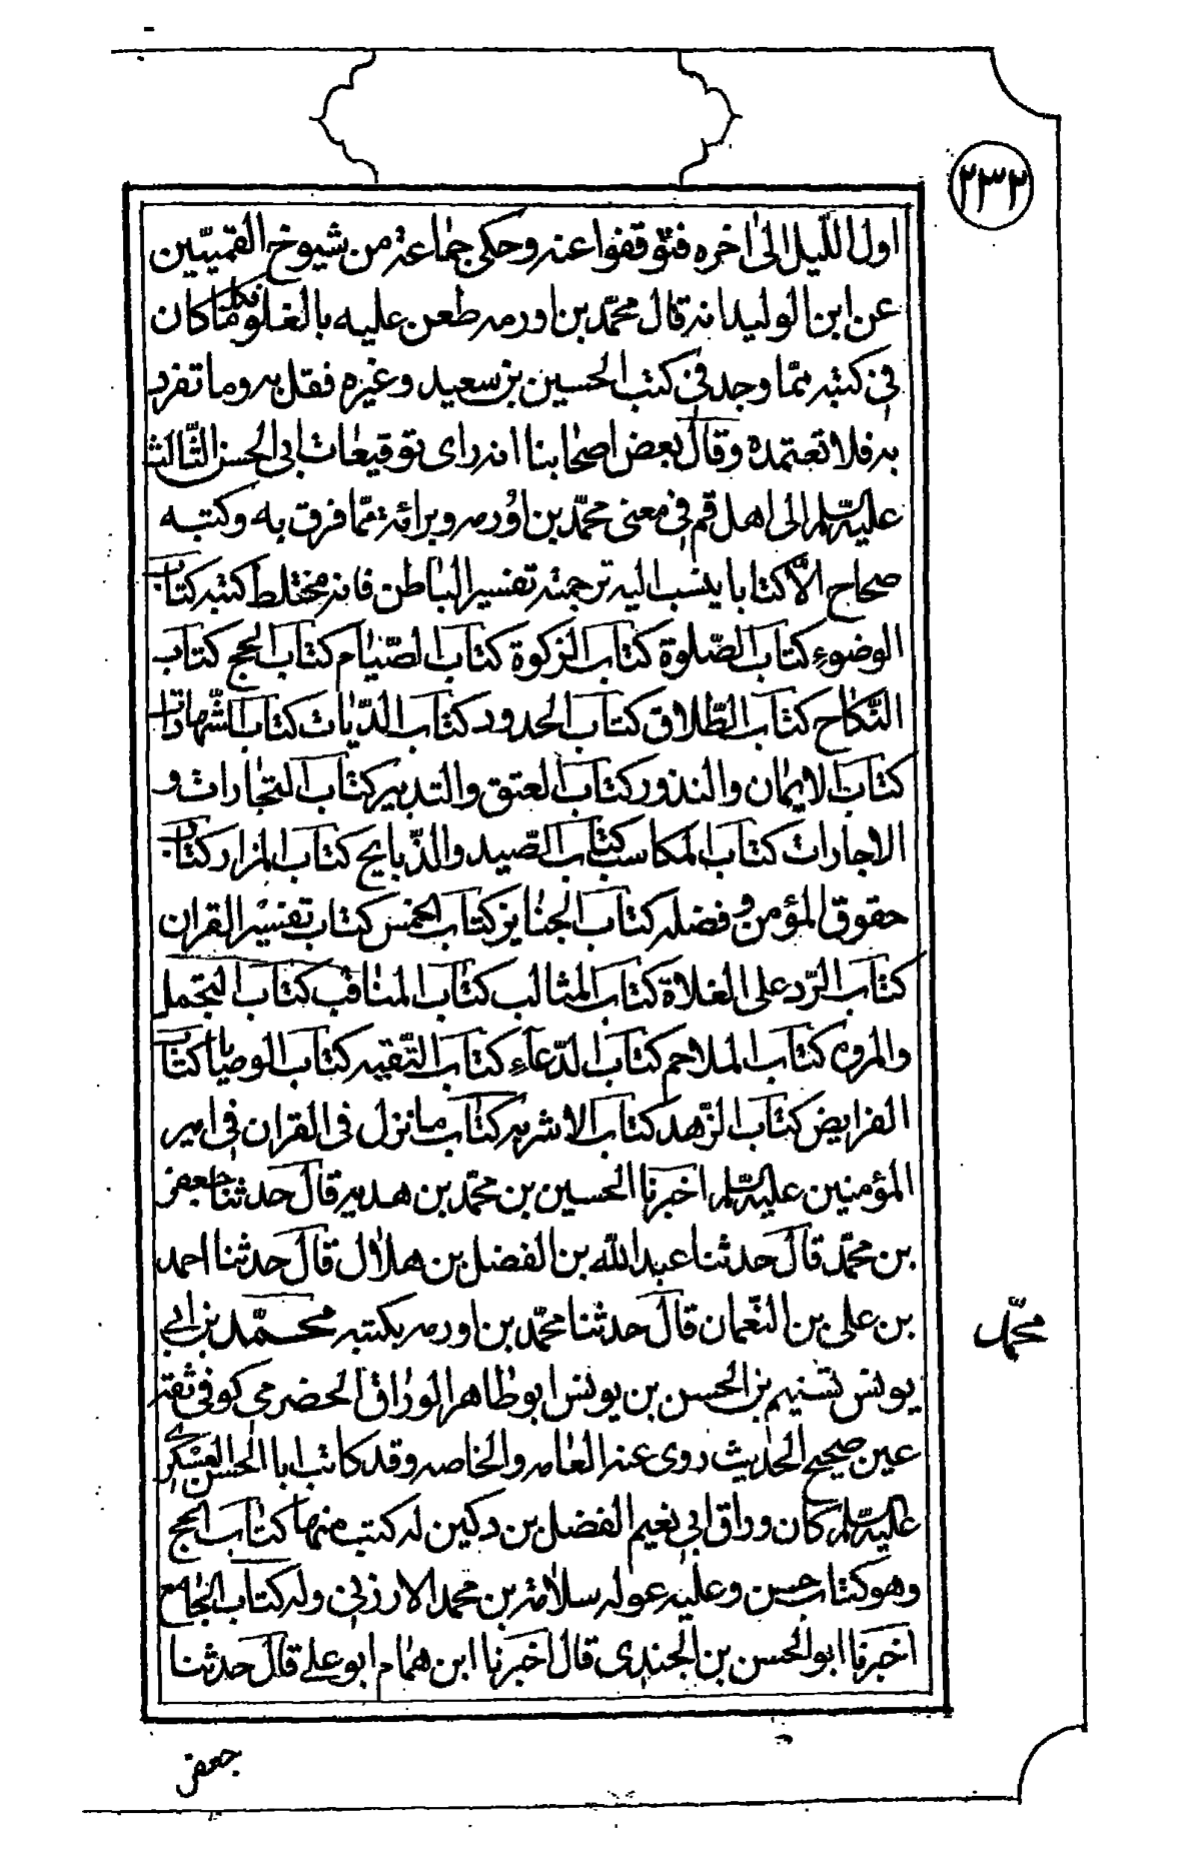 ٢٣٢
اول اللّيل الىٰ اخره فتوّقفوا عنه وحكى جمٰاعة من شيوخ القميّين
عن ابن الوليد انه قال محمّد بن اورمه طعن عليه بالغلو فكلمّا كان
فى كتبه ممّا وجد فى كتب الحسين بن سعيد وغيره فقل به وما تفرد
به فلا تعتمده وقال بعض اصحٰابنا انه راى توقيعٰات ابى الحسن الثّالث
عليه السّلم الى اهل قم فى معنى محمّد بن اُورمه وبرائة ممّا قرف به وكتبه
صحاح الاّ كتابا ينسب اليه ترجمته تفسير البٰاطن فانه مختلط كتبه كتاب
الوضوءِ كتاب الصّلوة كتاب الزكوة كتاب الصّيٰام كتاب الحج كتاب
النّكاح كتاب الطّلاق كتاب الحدود كتاب الدّيٰات كتاب الشّهادات
كتاب الايمٰان والنذور كتاب العتق والتدبير كتاب التجٰارات و
الاجارات كتاب المكاسب كتاب الصّيد والذّبايح كتاب المزار كتاب
حقوق المؤمن وفضله كتاب الجنٰايز كتاب الخمس كتاب تفسير القران
كتاب الرّد على الغلاة كتاب المثالب كتاب المنٰاقب كتاب التجمل
والمروه كتاب الملاحم كتاب الدّعآء كتاب التّقيه كتاب الوصايا كتاب
الفرايض كتاب الزّهد كتاب الاشربه كتاب ما نزل فى القران فى امير
المؤمنين عليه السّلم اخبرنا الحسين بن محمّد بن هديه قال حدثنا جعفر
بن محمّد قال حدثنا عبد اللّه بن الفضل بن هلال قال حدثنا احمد
بن على بن النّعمان قال حدثنا محمّد بن اورمه بكتبه محمّد بن ابي
محمّد
يونس تسنيم بن الحسن بن يونس ابو طاهر الورّاق الحضرمي كوفى ثقة
عين صحيح الحديث روى عنه العٰامه والخاصه وقد كاتب ابا الحسن العسكرى
عليه السّلم كان وراق ابى نعيم الفضل بن دكين له كتب منها كتاب الحج
وهو كتاب حسن وعليه عول سلامة بن محمد الارزنى وله كتاب الجٰامع
اخبرنا ابو الحسن بن الجندى قال اخبرنا ابن همٰام ابو على قال حدثنا
جعفر